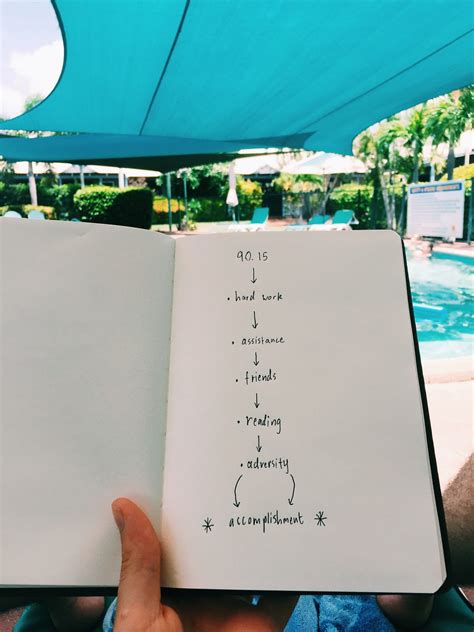 90.15
↓
• hard work
↓
• assistance
↓
• friends
↓
• reading
↓
• adversity
* accomplishment *